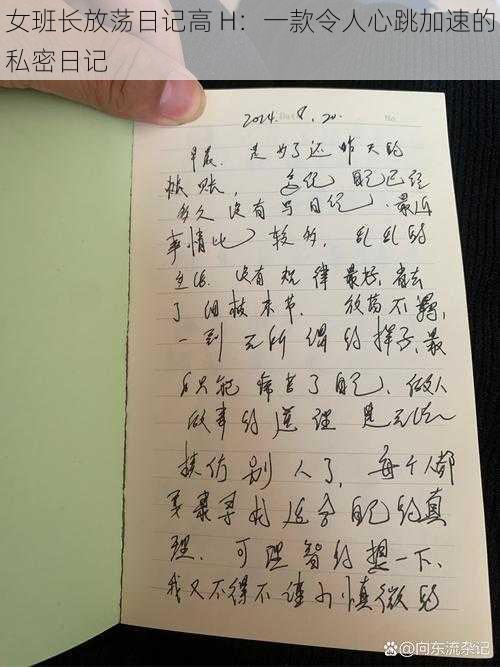 女班长放荡日记高 H：一款令人心跳加速的
私密日记
2024. 8. 20.
No
早晨. 是为了还昨天的
帐账, 总觉自己已经
多久没有写日记. 最近
事情比较多, 乱乱的
生活. 没有规律最好, 省去
了细枝末节. 放荡不羁,
一副无所谓的样子, 最
后只能痛苦了自己, 做人
做事的道理是无法
模仿别人了, 每个人都
要寻找适合自己的真
理. 可理智的想一下,
我又不得不谨小慎微的
向东流杂记